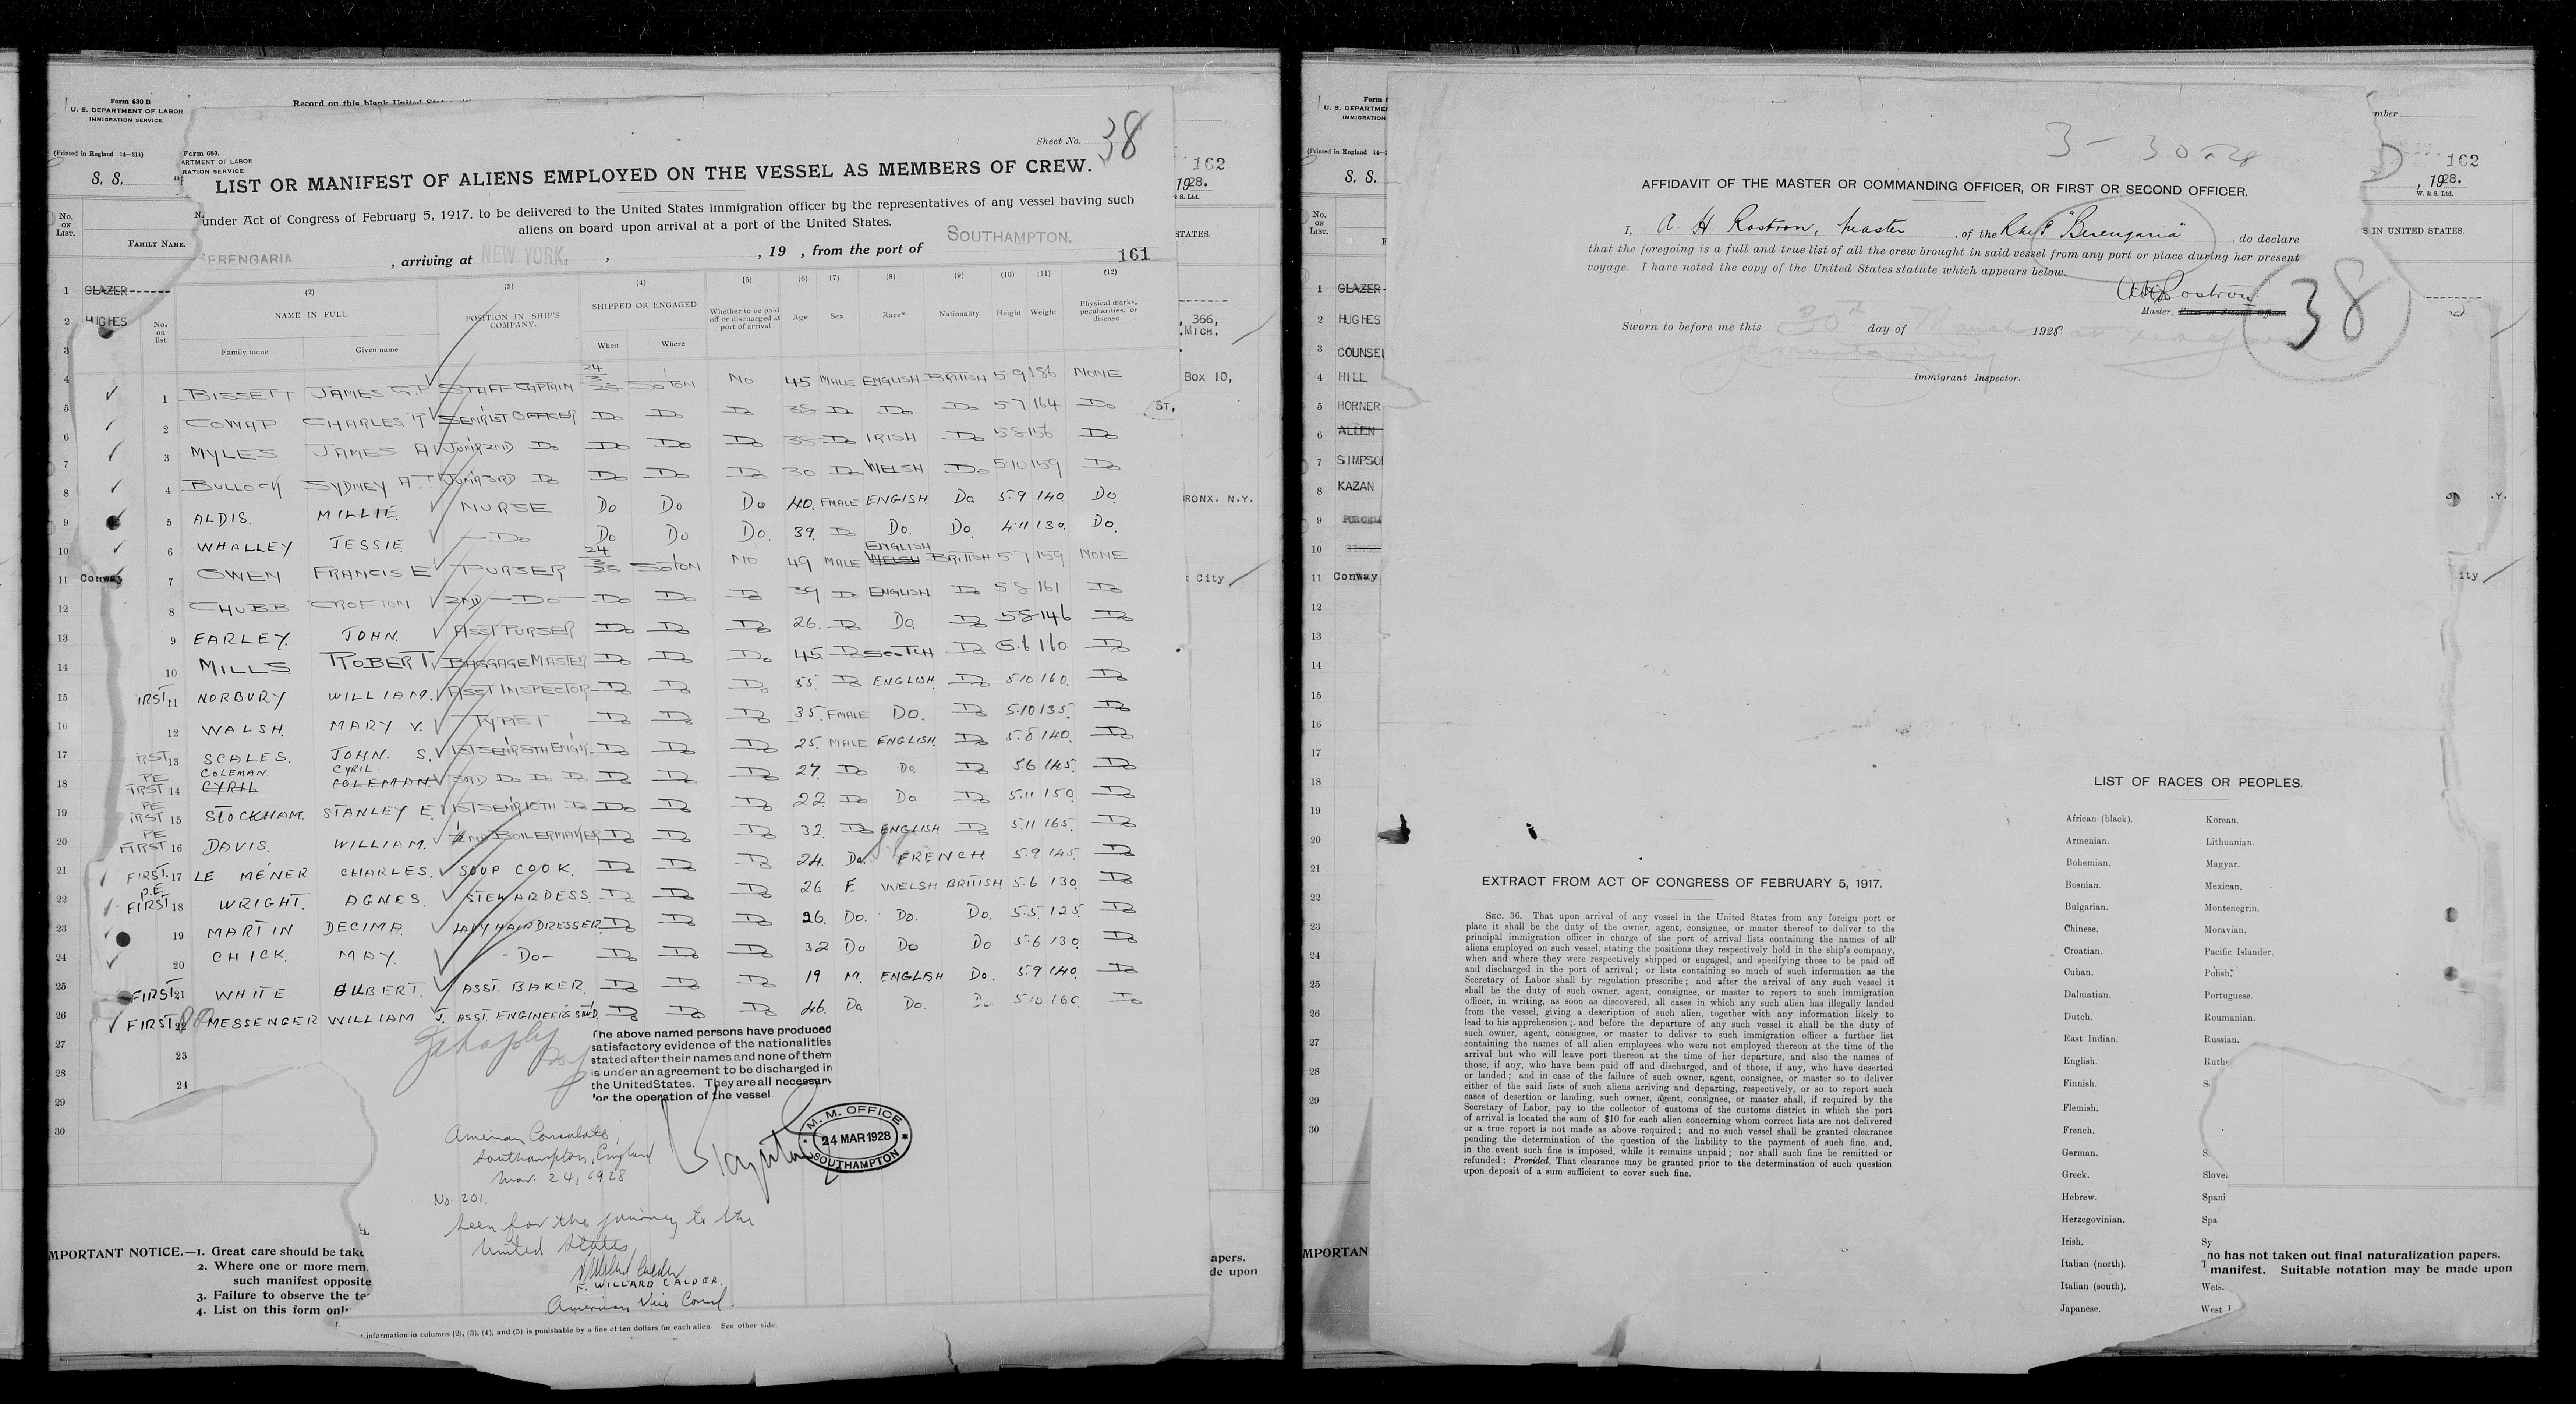 Form 630 B
U. S. DEPARTMENT OF LABOR
IMMIGRATION SERVICE
(Printed in England 14—214)
S. S.
No. ON LIST.
FAMILY NAME.
Record on this blank United
Form 680.
ARTMENT OF LABOR
RATION SERVICE
Sheet No. 38
LIST OR MANIFEST OF ALIENS EMPLOYED ON THE VESSEL AS MEMBERS OF CREW.
under Act of Congress of February 5, 1917, to be delivered to the United States immigration officer by the representatives of any vessel having such
aliens on board upon arrival at a port of the United States.
BERENGARIA, arriving at NEW YORK, , 19 , from the port of SOUTHAMPTON.
161
(2) (3) (4) (5) (6) (7) (8) (9) (10) (11) (12)
No. on list
NAME IN FULL
Family name Given name
POSITION IN SHIP'S COMPANY.
SHIPPED OR ENGAGED
When Where
Whether to be paid off or discharged at port of arrival
Age Sex Race* Nationality Height Weight
Physical marks, peculiarities, or disease
1 GLAZER
2 HUGHES
11 Conway
1 BISSETT JAMES G.P STAFF CAPTAIN 24/3/28 SOTON NO 45 MALE ENGLISH BRITISH 5 9 186 NONE
2 COWAP CHARLES R SENR 1ST OFFICER DO DO DO 38 DO DO DO 5 7 164 DO
3 MYLES JAMES A JUNR 2ND DO DO DO DO 38 DO IRISH DO 5 8 156 DO
4 BULLOCK SYDNEY A.T JUNR 3RD DO DO DO DO 30 DO WELSH DO 5 10 159 DO
5 ALDIS. MILLIE. NURSE DO DO DO 40. FMALE ENGISH. DO 5.9 140 DO.
6 WHALLEY JESSIE —DO DO DO DO. 39. DO DO. DO. 4.11 130. DO.
7 OWEN FRANCIS E PURSER 24/3/28 SOTON NO 49 MALE WELSH ENGLISH BRITISH 5 7 159 NONE
8 CHUBB CROFTON 2ND —DO— DO DO DO 39 DO ENGLISH DO 5 8 161 DO
9 EARLEY. JOHN. ASST PURSER DO DO DO 26. DO DO. DO 5 8 146 DO
10 MILLS ROBERT. BAGGAGE MASTER DO DO DO 45. DO SCOTCH DO 5.6 160. DO
IRST 11 NORBURY WILLIAM. ASST INSPECTOR DO DO DO 55. DO ENGLISH. DO 5.10 160. DO
12 WALSH. MARY V. TYPIST DO DO DO 35. FMALE DO. DO 5.10 135. DO
RST 13 SCALES. JOHN. S. 1ST SENR 8TH ENGR. DO DO DO 25. MALE ENGLISH. DO 5.8 140. DO
PE FIRST 14 COLEMAN CYRIL CYRIL. COLEMAN. 3RD DO DO DO DO DO DO 27. DO DO. DO 5.6 145. DO
PE IRST 15 STOCKHAM. STANLEY E. 1ST SENR 10TH DO DO DO DO 22 DO DO DO 5.11 150. DO
PE FIRST 16 DAVIS. WILLIAM. 2ND BOILERMAKER DO DO DO 32. DO ENGLISH DO 5.11 165. DO
FIRST. 17 LE MÉNER CHARLES. SOUP COOK. DO DO DO 24. DO. FRENCH. 5.9 145. DO
P.E FIRST 18 WRIGHT. AGNES. STEWARDESS. DO DO DO 26 F. WELSH BRITISH 5.6 130. DO
19 MARTIN DECIMA. LADY HAIRDRESSER. DO DO DO 26. DO. DO. DO. 5.5. 125. DO
20 CHICK. MAY. -DO- DO DO DO 32 DO DO DO 5.6 130. DO
FIRST 21 WHITE GILBERT. ASST. BAKER. DO DO DO 19 M. ENGLISH DO. 5.9 140. DO
FIRST 22 MESSENGER WILLIAM J. ASST. ENGINEERS STWD. DO DO DO 46. DO DO. DO 5.10 160. DO
23
24
The above named persons have produced
satisfactory evidence of the nationalities
stated after their names and none of them
is under an agreement to be discharged in
the United States. They are all necessary
for the operation of the vessel
M. M. OFFICE
24 MAR 1928
SOUTHAMPTON
American Consulate,
Southampton, England
Mar. 24, 1928
No. 201.
Seen for the journey to the
United States
F. WILLARD CALDER.
American Vice Consul.
IMPORTANT NOTICE.—1. Great care should be take
2. Where one or more mem
such manifest opposite
3. Failure to observe the te
4. List on this form only
information in columns (2), (3), (4), and (5) is punishable by a fine of ten dollars for each alien. See other side.
162
1928.
& S. Ltd.
STATES.
, 366,
MICH.
Box 10,
ST,
BRONX. N.Y.
City
apers.
de upon
U. S. DEPARTME
IMMIGRATION
(Printed in England 14—
S. S.
No. ON LIST.
1 GLAZER
2 HUGHES
3 COUNSEL
4 HILL
5 HORNER
6 ALLEN
7 SIMPSO
8 KAZAN
9 PURCELL
10
11 Conway
12
13
14
15
16
17
18
19
20
21
22
23
24
25
26
27
28
29
30
3-30-28
AFFIDAVIT OF THE MASTER OR COMMANDING OFFICER, OR FIRST OR SECOND OFFICER.
I, A. H. Rostron, Master, of the R.M.S. "Berengaria", do declare
that the foregoing is a full and true list of all the crew brought in said vessel from any port or place during her present
voyage. I have noted the copy of the United States statute which appears below.
A H Rostron.
Master, First or Second Officer.
38
Sworn to before me this 30th day of March 1928
Immigrant Inspector.
mber
162
, 1928.
W. & S. Ltd.
S IN UNITED STATES.
.Y.
ity
EXTRACT FROM ACT OF CONGRESS OF FEBRUARY 5, 1917.
SEC. 36. That upon arrival of any vessel in the United States from any foreign port or
place it shall be the duty of the owner, agent, consignee, or master thereof to deliver to the
principal immigration officer in charge of the port of arrival lists containing the names of all
aliens employed on such vessel, stating the positions they respectively hold in the ship's company,
when and where they were respectively shipped or engaged, and specifying those to be paid off
and discharged in the port of arrival; or lists containing so much of such information as the
Secretary of Labor shall by regulation prescribe; and after the arrival of any such vessel it
shall be the duty of such owner, agent, consignee, or master to report to such immigration
officer, in writing, as soon as discovered, all cases in which any such alien has illegally landed
from the vessel, giving a description of such alien, together with any information likely to
lead to his apprehension; and before the departure of any such vessel it shall be the duty of
such owner, agent, consignee, or master to deliver to such immigration officer a further list
containing the names of all alien employees who were not employed thereon at the time of the
arrival but who will leave port thereon at the time of her departure, and also the names of
those, if any, who have been paid off and discharged, and of those, if any, who have deserted
or landed; and in case of the failure of such owner, agent, consignee, or master so to deliver
either of the said lists of such aliens arriving and departing, respectively, or so to report such
cases of desertion or landing, such owner, agent, consignee, or master shall, if required by the
Secretary of Labor, pay to the collector of customs of the customs district in which the port
of arrival is located the sum of $10 for each alien concerning whom correct lists are not delivered
or a true report is not made as above required; and no such vessel shall be granted clearance
pending the determination of the question of the liability to the payment of such fine, and,
in the event such fine is imposed, while it remains unpaid; nor shall such fine be remitted or
refunded: Provided, That clearance may be granted prior to the determination of such question
upon deposit of a sum sufficient to cover such fine.
LIST OF RACES OR PEOPLES.
African (black). Korean.
Armenian. Lithuanian.
Bohemian. Magyar.
Bosnian. Mexican.
Bulgarian. Montenegrin.
Chinese. Moravian.
Croatian. Pacific Islander.
Cuban. Polish.
Dalmatian. Portuguese.
Dutch. Roumanian.
East Indian. Russian.
English. Ruth
Finnish. S
Flemish.
French.
German. S
Greek. Slove
Hebrew. Spani
Herzegovinian. Spa
Irish. Sy
Italian (north). T
Italian (south). Wels
Japanese. West I
MPORTAN
no has not taken out final naturalization papers.
manifest. Suitable notation may be made upon